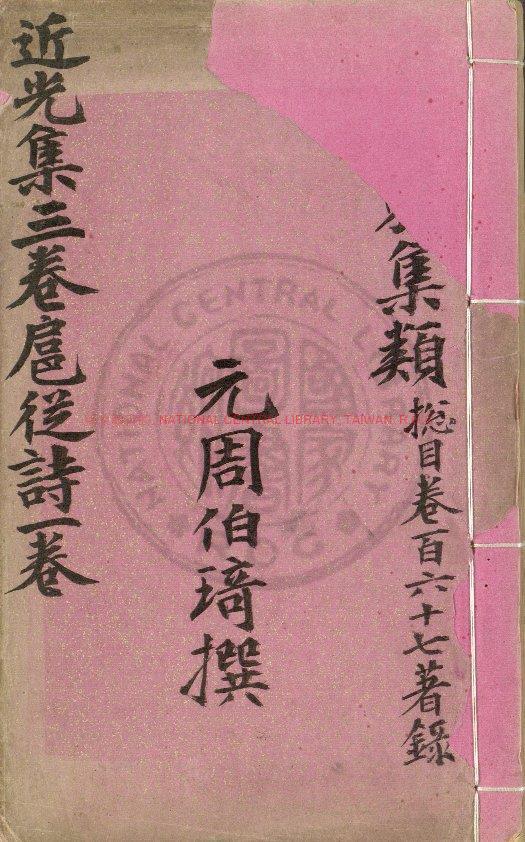 集類
總目卷一百六十七著錄
元周伯琦撰
近光集三卷扈從詩一卷
NATIONAL CENTRAL LIBRARY, TAIWAN, R.O.C
NATIONAL CENTRAL LIBRARY